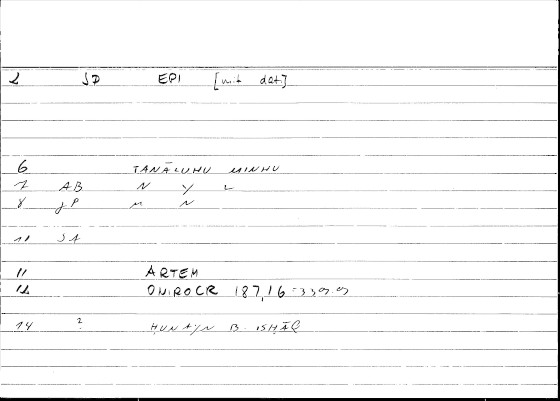 2 JP EPI [mit dat.]
6 TANĀLUHU MINHU
7 AB N Y L
8 JP M N
10 SA
11 ARTEM
12 ONIROCR 187,16
14 ? ḤUNAYN B. ISḤĀQ